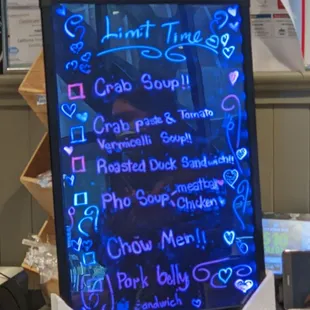 Limit Time
Crab Soup!!
Crab paste & Tomato
Vermicelli Soup!!
Roasted Duck Sandwich!!
Pho Soup meatball
Chicken
Chow Mein!!
Pork belly
Sandwich